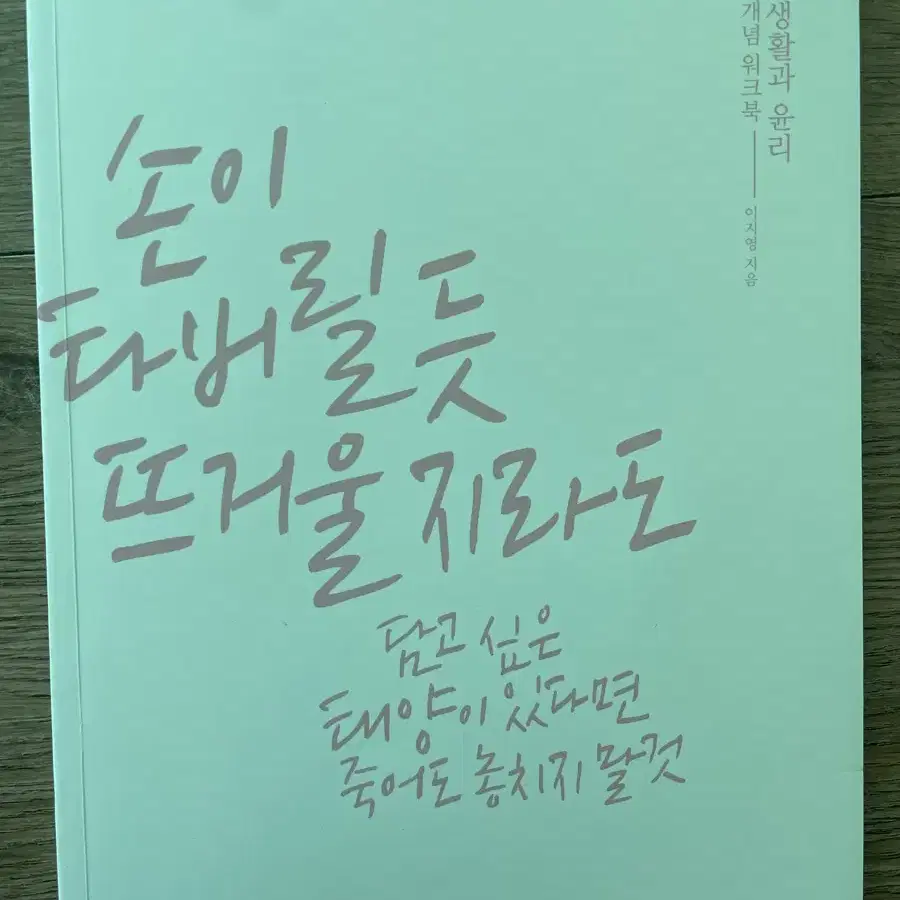 생활과 윤리
개념 워크북
이지영 지음
손이
타버릴 듯
뜨거울지라도
담고 싶은
태양이 있다면
죽어도 놓치지 말 것